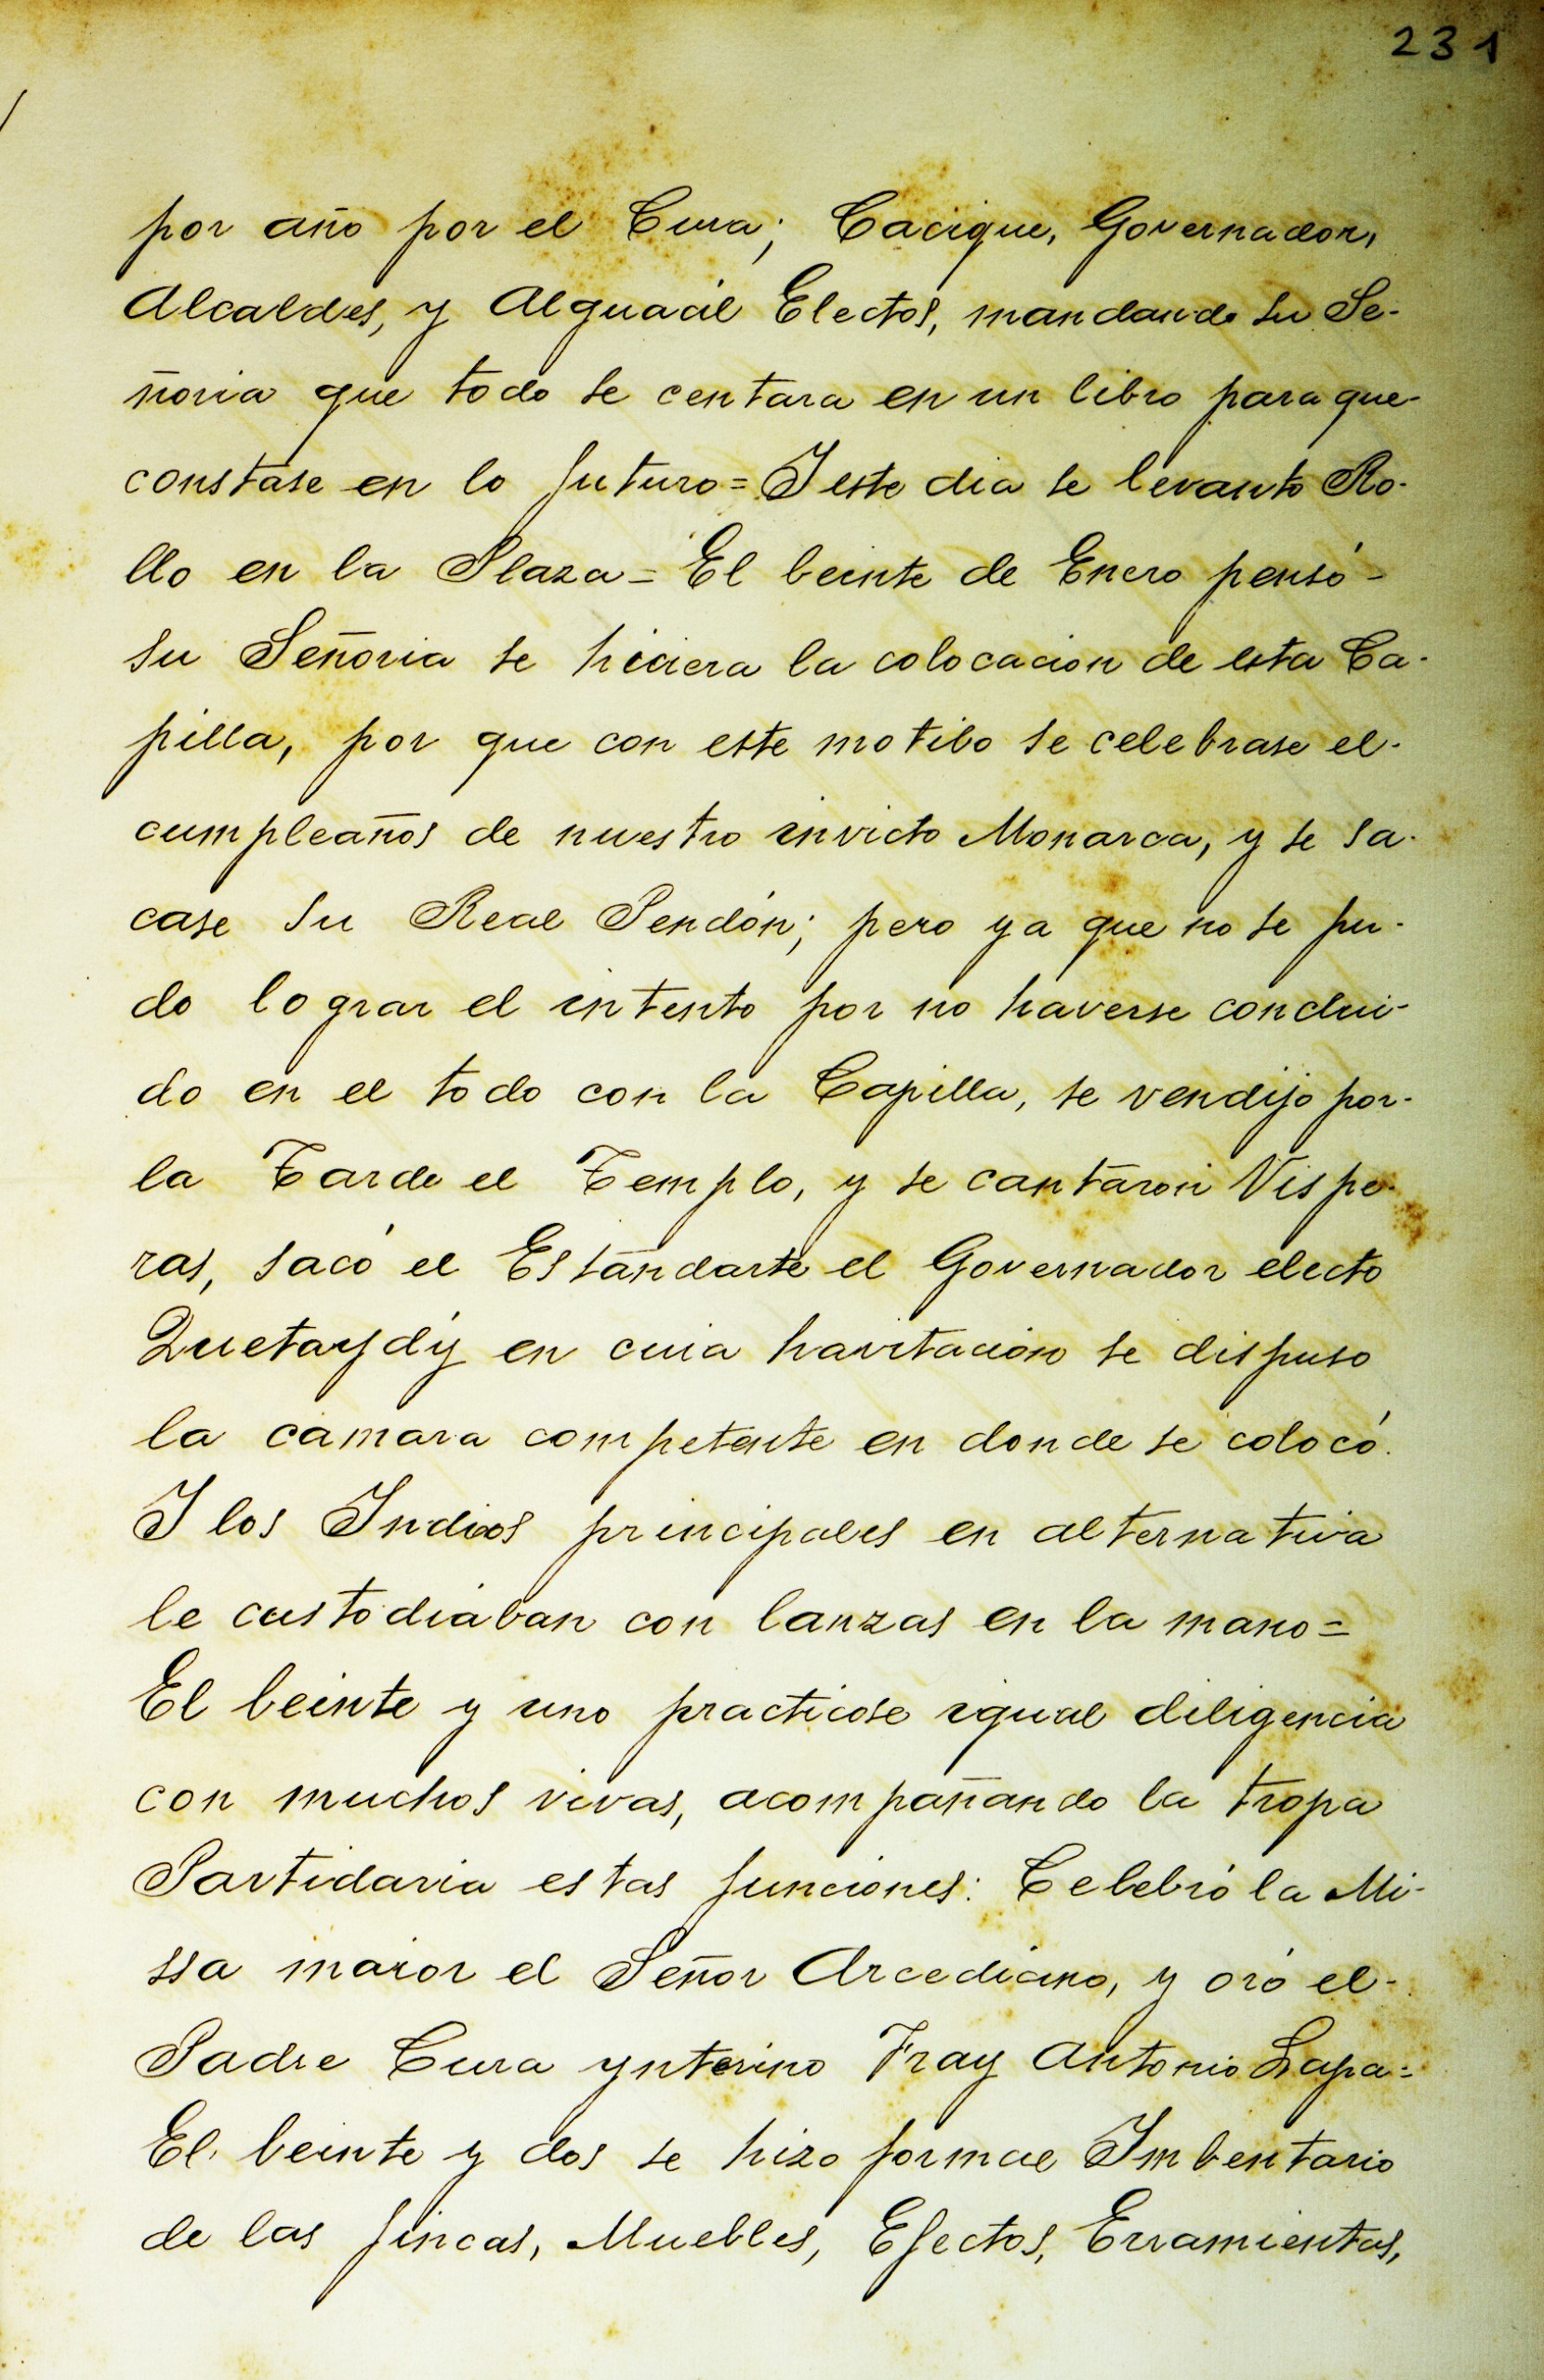 231
por año por el Cura; Cacique, Governador,
Alcaldes, y Alguacil Electos, mandando su Se-
ñoria que todo se centara en un libro para que-
constase en lo futuro = I este dia se levanto Ro-
llo en la Plaza = El beinte de Enero pensó -
su Señoria se hiciera la colocacion de esta Ca-
pilla, por que con este motibo se celebrase el-
cumpleaños de nuestro invicto Monarca, y se sa-
case su Real Pendón; pero ya que no se pu-
do lograr el intento por no haverse conclui-
do en el todo con la Capilla, se vendijo por-
la Tarde el Templo, y se cantaron Vispe-
ras, sacó el Estandarte el Governador electo
Quetaydíy en cuia havitacion se dispuso
la camara competente en donde se colocó.
I los Indios principales en alternativa
le custodiaban con lanzas en la mano =
El beinte y uno practicose igual diligencia
con muchos vivas, acompañando la tropa
Partidaria estas funciones: Celebró la Mi-
ssa maior el Señor Arcediano, y oró el-
Padre Cura ynterino Fray Antonio Lapa =
El beinte y dos se hizo formal Imbentario
de las fincas, Muebles, Efectos, Erramientas,